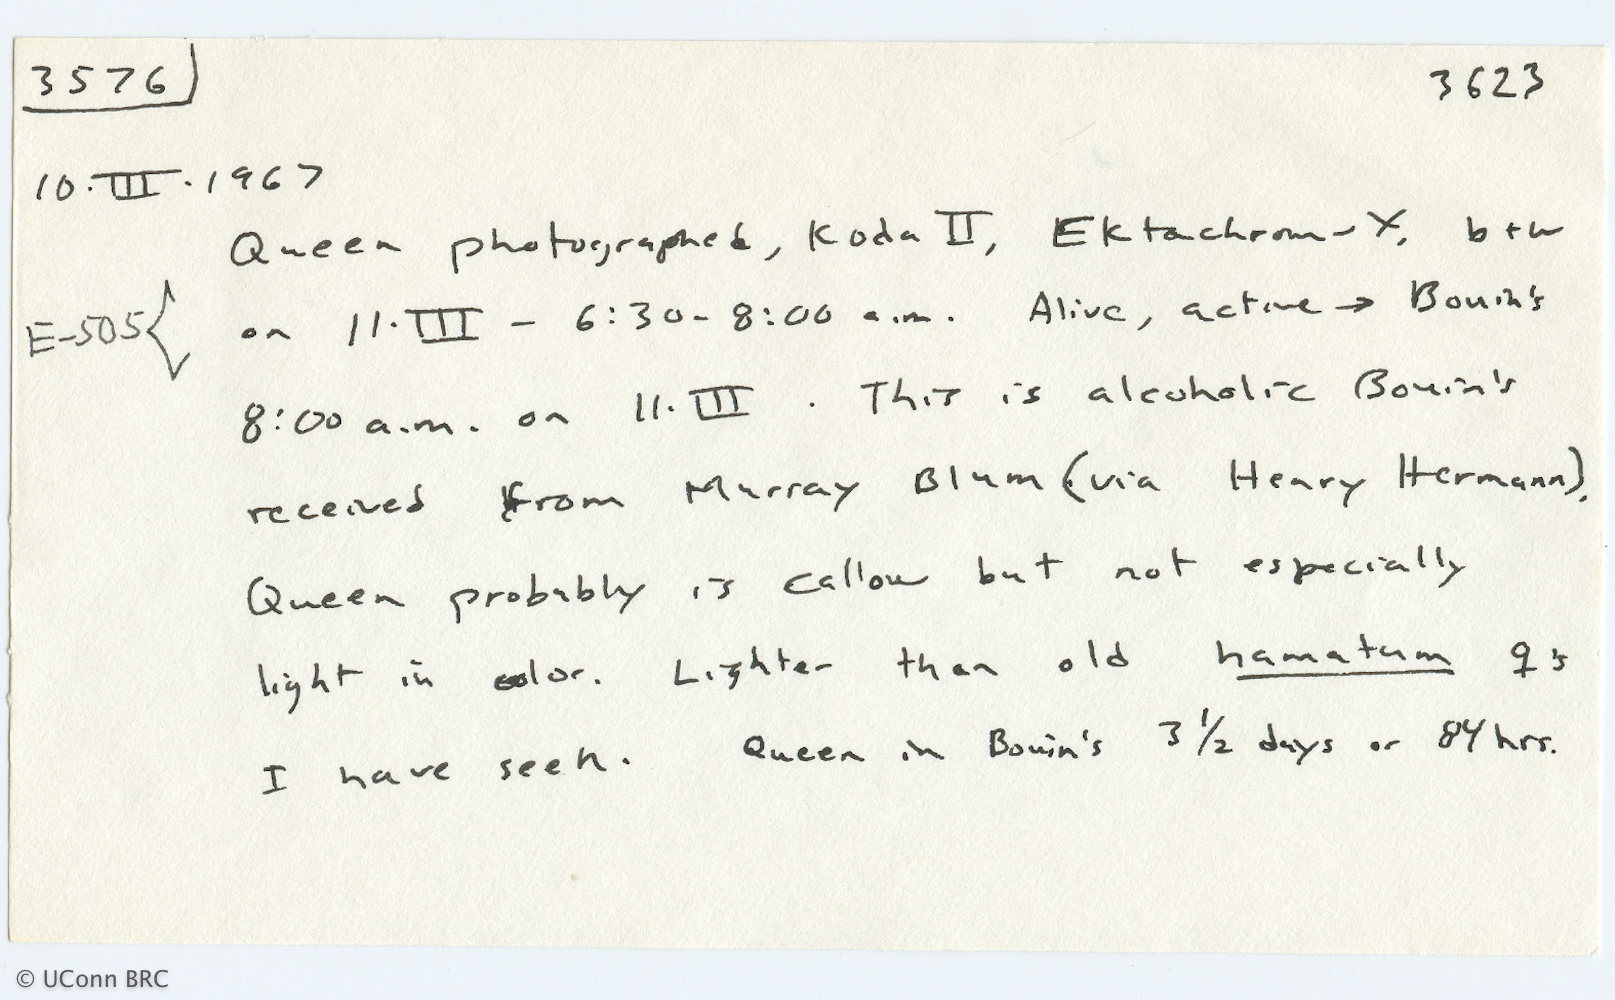 3576 3623
10.III.1967
Queen photographed, Koda II, Ektachrom-X, b+w
E-505 { on 11.III - 6:30-8:00 a.m. Alive, active → Bouin's
8:00 a.m. on 11.III. This is alcoholic Bouin's
received from Murray Blum (via Henry Hermann).
Queen probably is callow but not especially
light in color. Lighter than old hamatum q's
I have seen. Queen in Bouin's 3 1/2 days or 84 hrs.
© UConn BRC